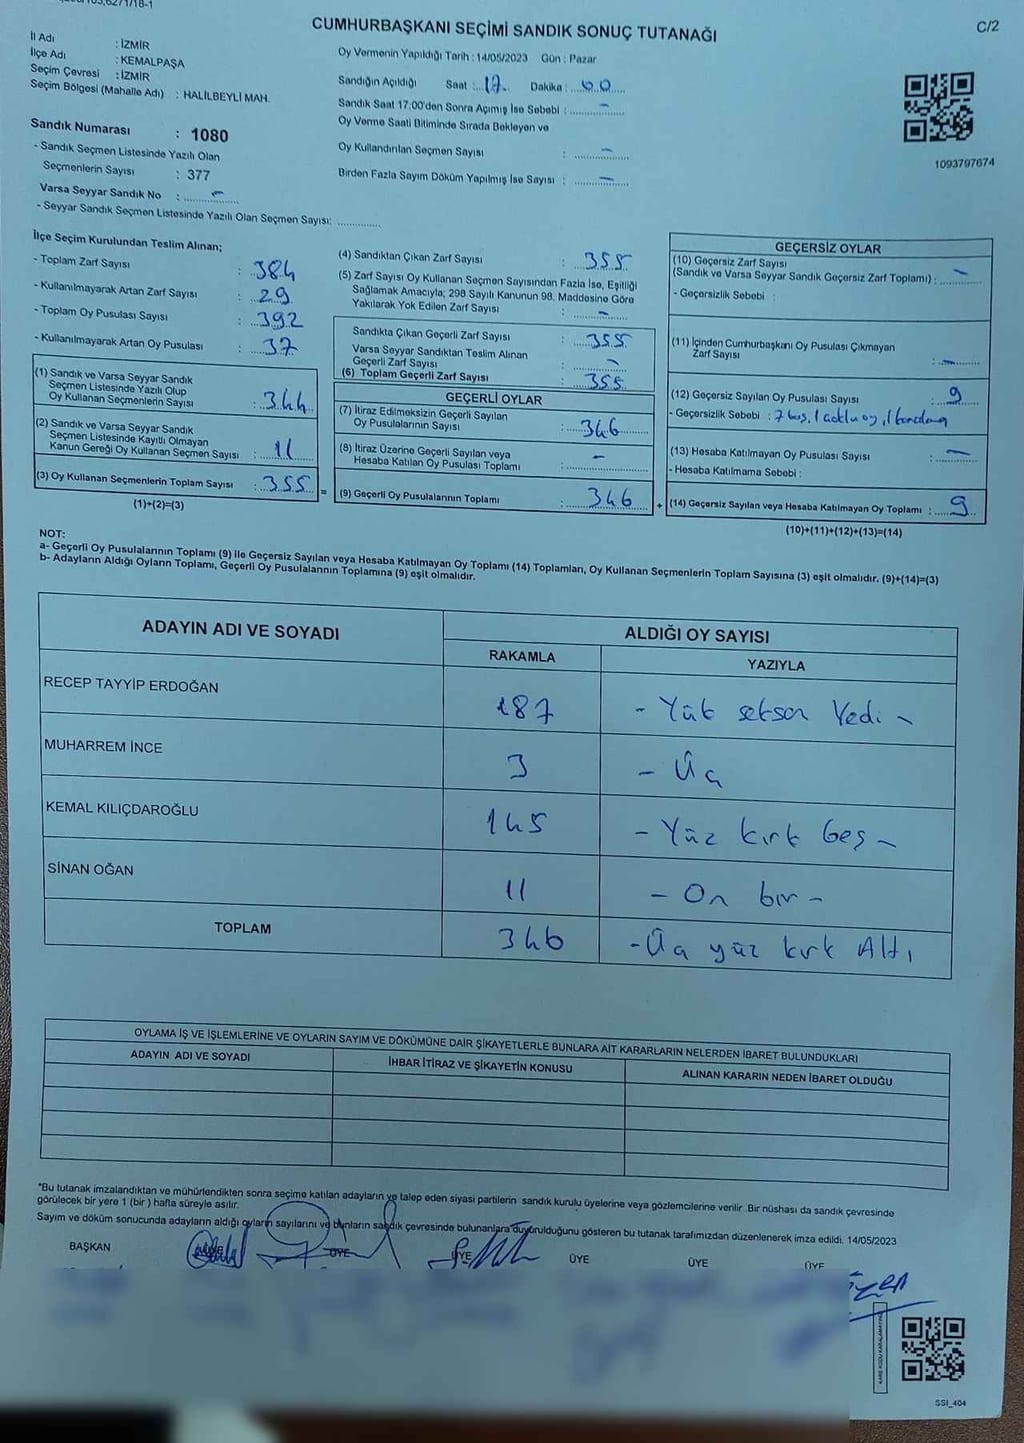 CUMHURBAŞKANI SEÇİMİ SANDIK SONUÇ TUTANAĞI
C/2
İl Adı : İZMİR
İlçe Adı : KEMALPAŞA
Seçim Çevresi : İZMİR
Seçim Bölgesi (Mahalle Adı) : HALİLBEYLİ MAH.
Sandık Numarası : 1080
- Sandık Seçmen Listesinde Yazılı Olan
Seçmenlerin Sayısı : 377
Varsa Seyyar Sandık No : -
- Seyyar Sandık Seçmen Listesinde Yazılı Olan Seçmen Sayısı:
Oy Vermenin Yapıldığı Tarih : 14/05/2023 Gün : Pazar
Sandığın Açıldığı Saat : 17 Dakika : 00
Sandık Saat 17:00'den Sonra Açımış İse Sebebi : -
Oy Verme Saati Bitiminde Sırada Bekleyen ve
Oy Kullandırılan Seçmen Sayısı : -
Birden Fazla Sayım Döküm Yapılmış İse Sayısı : -
1093797674
İlçe Seçim Kurulundan Teslim Alınan;
- Toplam Zarf Sayısı : 384
- Kullanılmayarak Artan Zarf Sayısı : 29
- Toplam Oy Pusulası Sayısı : 392
- Kullanılmayarak Artan Oy Pusulası : 37
(1) Sandık ve Varsa Seyyar Sandık
Seçmen Listesinde Yazılı Olup
Oy Kullanan Seçmenlerin Sayısı : 344
(2) Sandık ve Varsa Seyyar Sandık
Seçmen Listesinde Kayıtlı Olmayan
Kanun Gereği Oy Kullanan Seçmen Sayısı : 11
(3) Oy Kullanan Seçmenlerin Toplam Sayısı : 355 =
(1)+(2)=(3)
(4) Sandıktan Çıkan Zarf Sayısı : 355
(5) Zarf Sayısı Oy Kullanan Seçmen Sayısından Fazla İse, Eşitliği
Sağlamak Amacıyla; 298 Sayılı Kanunun 98. Maddesine Göre
Yakılarak Yok Edilen Zarf Sayısı : -
Sandıkta Çıkan Geçerli Zarf Sayısı : 355
Varsa Seyyar Sandıktan Teslim Alınan
Geçerli Zarf Sayısı : -
(6) Toplam Geçerli Zarf Sayısı : 355
GEÇERLİ OYLAR
(7) İtiraz Edilmeksizin Geçerli Sayılan
Oy Pusulalarının Sayısı : 346
(8) İtiraz Üzerine Geçerli Sayılan veya
Hesaba Katılan Oy Pusulası Toplamı : -
(9) Geçerli Oy Pusulalarının Toplamı : 346 +
GEÇERSİZ OYLAR
(10) Geçersiz Zarf Sayısı
(Sandık ve Varsa Seyyar Sandık Geçersiz Zarf Toplamı) : -
- Geçersizlik Sebebi :
(11) İçinden Cumhurbaşkanı Oy Pusulası Çıkmayan
Zarf Sayısı : -
(12) Geçersiz Sayılan Oy Pusulası Sayısı : 9
- Geçersizlik Sebebi : 7 boş, 1
(13) Hesaba Katılmayan Oy Pusulası Sayısı : -
- Hesaba Katılmama Sebebi :
(14) Geçersiz Sayılan veya Hesaba Katılmayan Oy Toplamı : 9
(10)+(11)+(12)+(13)=(14)
NOT:
a- Geçerli Oy Pusulalarının Toplamı (9) ile Geçersiz Sayılan veya Hesaba Katılmayan Oy Toplamı (14) Toplamları, Oy Kullanan Seçmenlerin Toplam Sayısına (3) eşit olmalıdır. (9)+(14)=(3)
b- Adayların Aldığı Oyların Toplamı, Geçerli Oy Pusulalarının Toplamına (9) eşit olmalıdır.
ADAYIN ADI VE SOYADI
ALDIĞI OY SAYISI
RAKAMLA YAZIYLA
RECEP TAYYİP ERDOĞAN 187 - Yüz seksen Yedi -
MUHARREM İNCE 3 - Üç
KEMAL KILIÇDAROĞLU 145 - Yüz kırk beş -
SİNAN OĞAN 11 - On bir -
TOPLAM 346 - Üç yüz kırk Altı
OYLAMA İŞ VE İŞLEMLERİNE VE OYLARIN SAYIM VE DÖKÜMÜNE DAİR ŞİKAYETLERLE BUNLARA AİT KARARLARIN NELERDEN İBARET BULUNDUKLARI
ADAYIN ADI VE SOYADI İHBAR İTİRAZ VE ŞİKAYETİN KONUSU ALINAN KARARIN NEDEN İBARET OLDUĞU
"Bu tutanak imzalandıktan ve mühürlendikten sonra seçime katılan adayların ve talep eden siyasi partilerin sandık kurulu üyelerine veya gözlemcilerine verilir. Bir nüshası da sandık çevresinde
görülecek bir yere 1 (bir ) hafta süreyle asılır.
Sayım ve döküm sonucunda adayların aldığı oyların sayılarını ve bunların sandık çevresinde bulunanlara duyurulduğunu gösteren bu tutanak tarafımızdan düzenlenerek imza edildi. 14/05/2023
BAŞKAN ÜYE ÜYE ÜYE ÜYE ÜYE
SSI_404